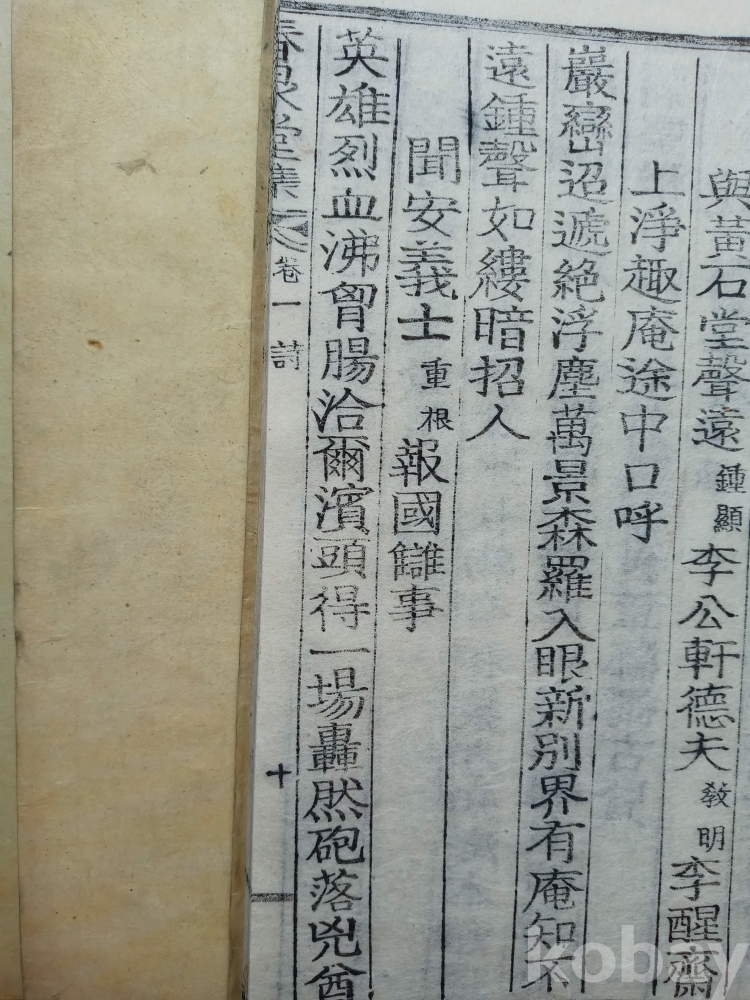 與黃石堂聲遠 鍾顯 李公軒德夫 敎明 李醒齋
上淨趣庵途中口呼
巖巒迢遞絶浮塵萬景森羅入眼新別界有庵知不
遠鍾聲如縷暗招人
聞安義士 重根 報國讎事
英雄烈血沸胷腸洽爾濱頭得一場轟然砲落兇酋
春泉堂集 卷一 詩 十
kobay